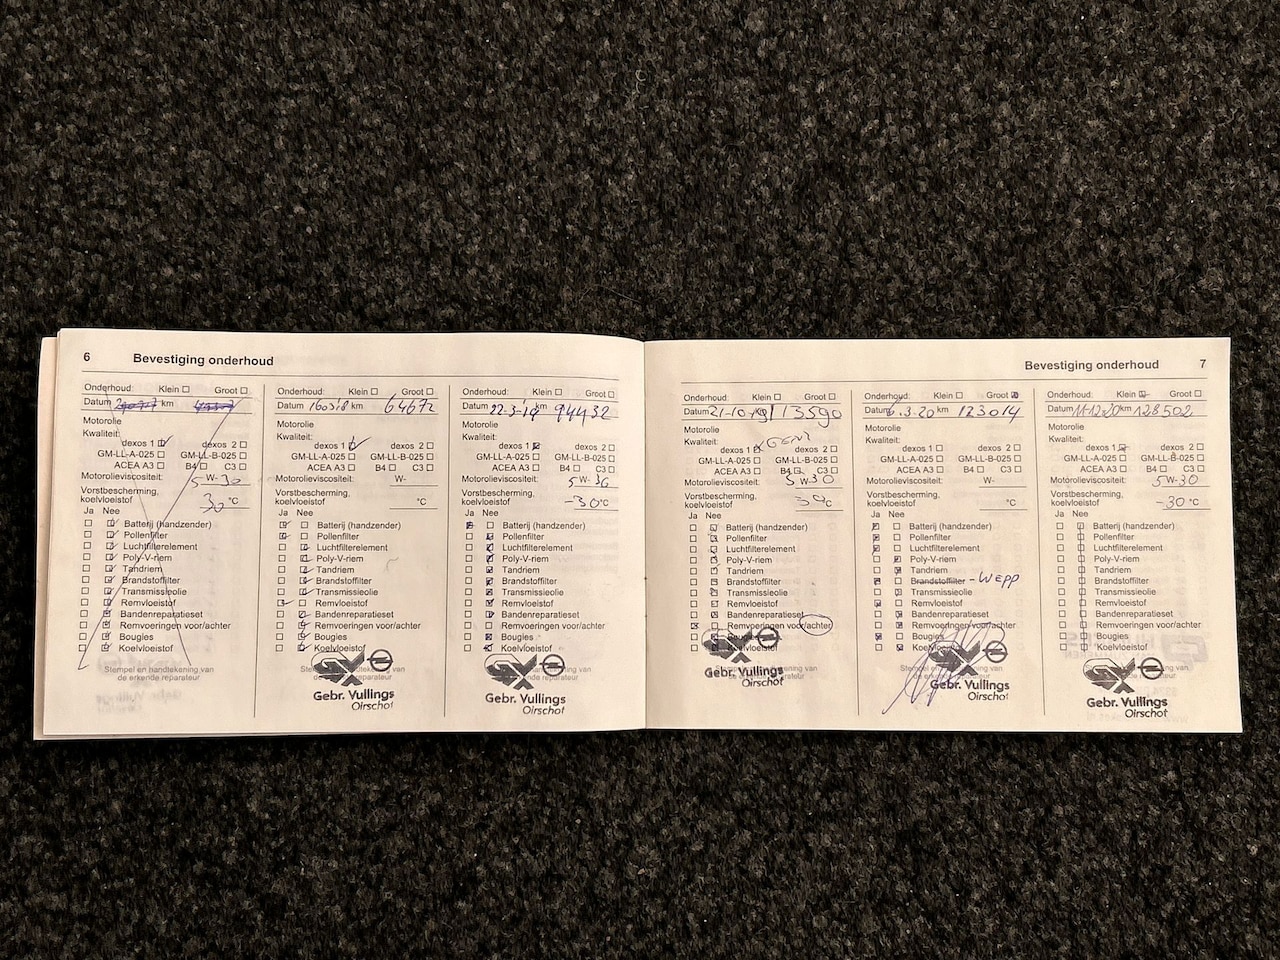 6 Bevestiging onderhoud
Onderhoud: Klein Groot
Datum km
Motorolie
Kwaliteit:
dexos 1 dexos 2
GM-LL-A-025 GM-LL-B-025
ACEA A3 B4 C3
Motorolieviscositeit: 5 W- 30
Vorstbescherming,
koelvloeistof 30 °C
Ja Nee
Batterij (handzender)
Pollenfilter
Luchtfilterelement
Poly-V-riem
Tandriem
Brandstoffilter
Transmissieolie
Remvloeistof
Bandenreparatieset
Remvoeringen voor/achter
Bougies
Koelvloeistof
Stempel en handtekening van
de erkende reparateur
Onderhoud: Klein Groot
Datum 160318 km 64672
Motorolie
Kwaliteit:
dexos 1 dexos 2
GM-LL-A-025 GM-LL-B-025
ACEA A3 B4 C3
Motorolieviscositeit: W-
Vorstbescherming,
koelvloeistof °C
Ja Nee
Batterij (handzender)
Pollenfilter
Luchtfilterelement
Poly-V-riem
Tandriem
Brandstoffilter
Transmissieolie
Remvloeistof
Bandenreparatieset
Remvoeringen voor/achter
Bougies
Koelvloeistof
Stempel en handtekening van
de erkende reparateur
Gebr. Vullings
Oirschot
Onderhoud: Klein Groot
Datum 22-3-19 km 94432
Motorolie
Kwaliteit:
dexos 1 dexos 2
GM-LL-A-025 GM-LL-B-025
ACEA A3 B4 C3
Motorolieviscositeit: 5 W- 30
Vorstbescherming,
koelvloeistof -30 °C
Ja Nee
Batterij (handzender)
Pollenfilter
Luchtfilterelement
Poly-V-riem
Tandriem
Brandstoffilter
Transmissieolie
Remvloeistof
Bandenreparatieset
Remvoeringen voor/achter
Bougies
Koelvloeistof
Stempel en handtekening van
de erkende reparateur
Gebr. Vullings
Oirschot
Bevestiging onderhoud 7
Onderhoud: Klein Groot
Datum 21-10-19 113590
Motorolie
Kwaliteit:
dexos 1 dexos 2
GM-LL-A-025 GM-LL-B-025
ACEA A3 B4 C3
Motorolieviscositeit: 5 W-30
Vorstbescherming,
koelvloeistof °C
Ja Nee
Batterij (handzender)
Pollenfilter
Luchtfilterelement
Poly-V-riem
Tandriem
Brandstoffilter
Transmissieolie
Remvloeistof
Bandenreparatieset
Remvoeringen voor/achter
Bougies
Koelvloeistof
Stempel en handtekening van
de erkende reparateur
Gebr. Vullings
Oirschot
Onderhoud: Klein Groot
Datum 6.3.20 km 123014
Motorolie
Kwaliteit:
dexos 1 dexos 2
GM-LL-A-025 GM-LL-B-025
ACEA A3 B4 C3
Motorolieviscositeit: W-
Vorstbescherming,
koelvloeistof °C
Ja Nee
Batterij (handzender)
Pollenfilter
Luchtfilterelement
Poly-V-riem
Tandriem
Brandstoffilter - WEPP
Transmissieolie
Remvloeistof
Bandenreparatieset
Remvoeringen voor/achter
Bougies
Koelvloeistof
Stempel en handtekening van
de erkende reparateur
Gebr. Vullings
Oirschot
Onderhoud: Klein Groot
Datum 11-12-20 km 128502
Motorolie
Kwaliteit:
dexos 1 dexos 2
GM-LL-A-025 GM-LL-B-025
ACEA A3 B4 C3
Motorolieviscositeit: 5 W-30
Vorstbescherming,
koelvloeistof -30 °C
Ja Nee
Batterij (handzender)
Pollenfilter
Luchtfilterelement
Poly-V-riem
Tandriem
Brandstoffilter
Transmissieolie
Remvloeistof
Bandenreparatieset
Remvoeringen voor/achter
Bougies
Koelvloeistof
Stempel en handtekening van
de erkende reparateur
Gebr. Vullings
Oirschot